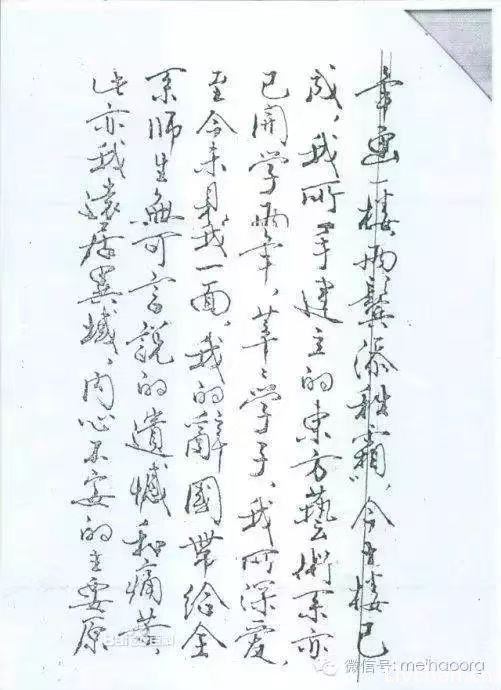 画一楼，两鬓添秋霜”，今楼已
成，我所一手建立的东方藝術系亦
已開学两年，莘々学子，我所深爱，
至今未見我一面，我的辭國带给全
系师生無可言說的遺憾和痛苦，
此亦我遠居異域，内心不安的主要原
Baidu百科
微信号: meihaoorg